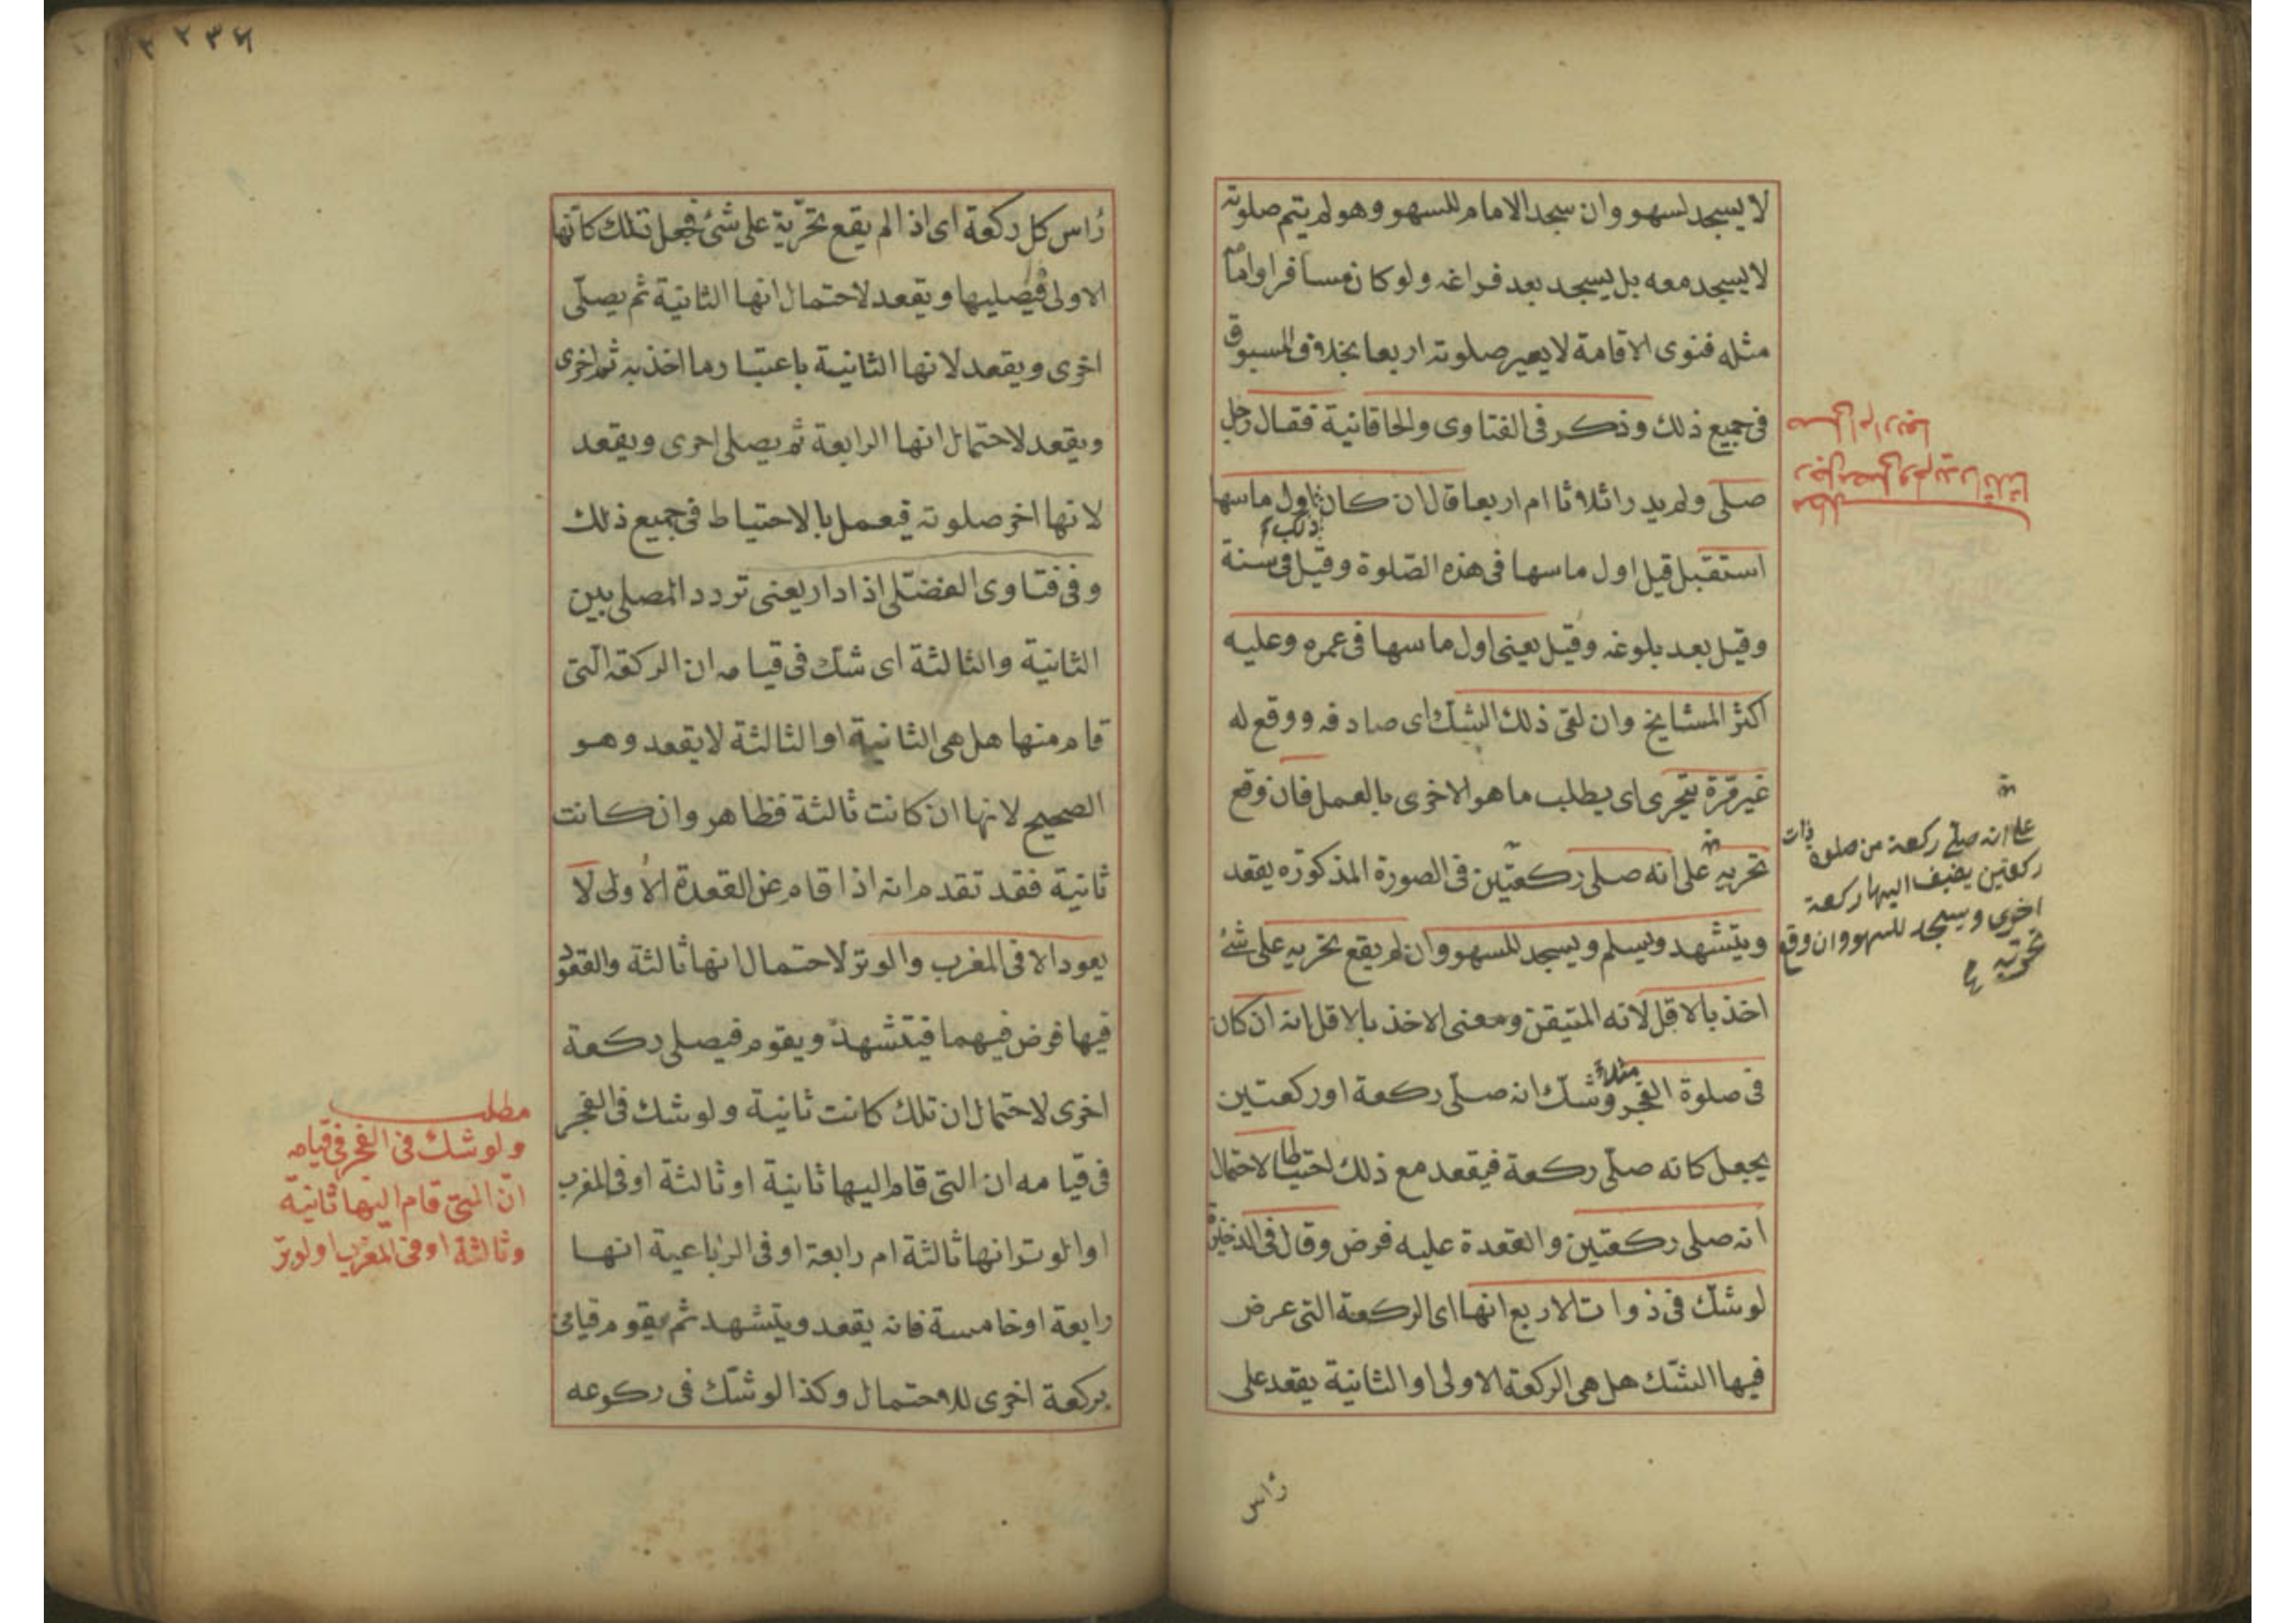 لا يسجد لسهو وان سجد الامام للسهو وهو لم يتم صلوته
لا يسجد معه بل يسجد بعد فراغه ولو كان مسافرا وامامه
مثله فنوى الاقامة لا يصير صلوته اربعا بخلاف المسبوق
فى جميع ذلك وذكر فى الفتاوى والخاقانية فقال رجل
صلى ولم يدر اثلاثا ام اربعا قال ان كان ذلك اول ما سها
استقبل قيل اول ما سها فى هذه الصلوة وقيل فى سنة
وقيل بعد بلوغه وقيل يعنى اول ما سها فى عمره وعليه
اكثر المشايخ وان لقى ذلك الشك اى صادفه ووقع له
غير مرة يتحرى اى يطلب ما هو الاخرى بالعمل فان وقع
تحريه على انه صلى ركعتين فى الصورة المذكورة يقعد
ويتشهد ويسلم ويسجد للسهو وان لم يقع تحريه على شئ
اخذ بالاقل لانه المتيقن ومعنى الاخذ بالاقل انه ان كان
فى صلوة الفجر مثلا وشك انه صلى ركعة او ركعتين
يجعل كانه صلى ركعة فيقعد مع ذلك احتياطا لاحتمال
انه صلى ركعتين والقعدة عليه فرض وقال فى الذخيرة
لو شك فى ذوات الاربع انها اى الركعة التى عرض
فيها الشك هل هى الركعة الاولى او الثانية يقعد على
راس
مطلب
رجل صلى ولم يدر اثلاثا
صلى ام اربعا
على انه صلى ركعة من صلوة ذات
ركعتين يضيف اليها ركعة
اخرى ويسجد للسهو وان وقع
تحريه
٢٣٦
رأس كل ركعة اى اذا لم يقع تحريه على شئ فجعل تلك كانها
الاولى فيصليها ويقعد لاحتمال انها الثانية ثم يصلى
اخرى ويقعد لانها الثانية باعتبار ما اخذ به ثم اخرى
ويقعد لاحتمال انها الرابعة ثم يصلى اخرى ويقعد
لانها اخر صلوته فيعمل بالاحتياط فى جميع ذلك
وفى فتاوى الفضلى اذا دار يعنى تردد المصلى بين
الثانية والثالثة اى شك فى قيامه ان الركعة التى
قام منها هل هى الثانية او الثالثة لا يقعد وهو
الصحيح لانها ان كانت ثالثة فظاهر وان كانت
ثانية فقد تقدم انه اذا قام عن القعدة الاولى لا
يعود الا فى المغرب والوتر لاحتمال انها ثالثة والقعود
فيها فرض فيهما فيتشهد ويقوم فيصلى ركعة
اخرى لاحتمال ان تلك كانت ثانية ولو شك فى الفجر
فى قيامه ان التى قام اليها ثانية او ثالثة او فى المغرب
او الوتر انها ثالثة ام رابعة او فى الرباعية انها
رابعة او خامسة فانه يقعد ويتشهد ثم يقوم فياتى
بركعة اخرى للاحتمال وكذا لو شك فى ركوعه
مطلب
ولو شك فى الفجر فى قيامه
ان التى قام اليها ثانية
وثالثة او فى المغرب او لوتر